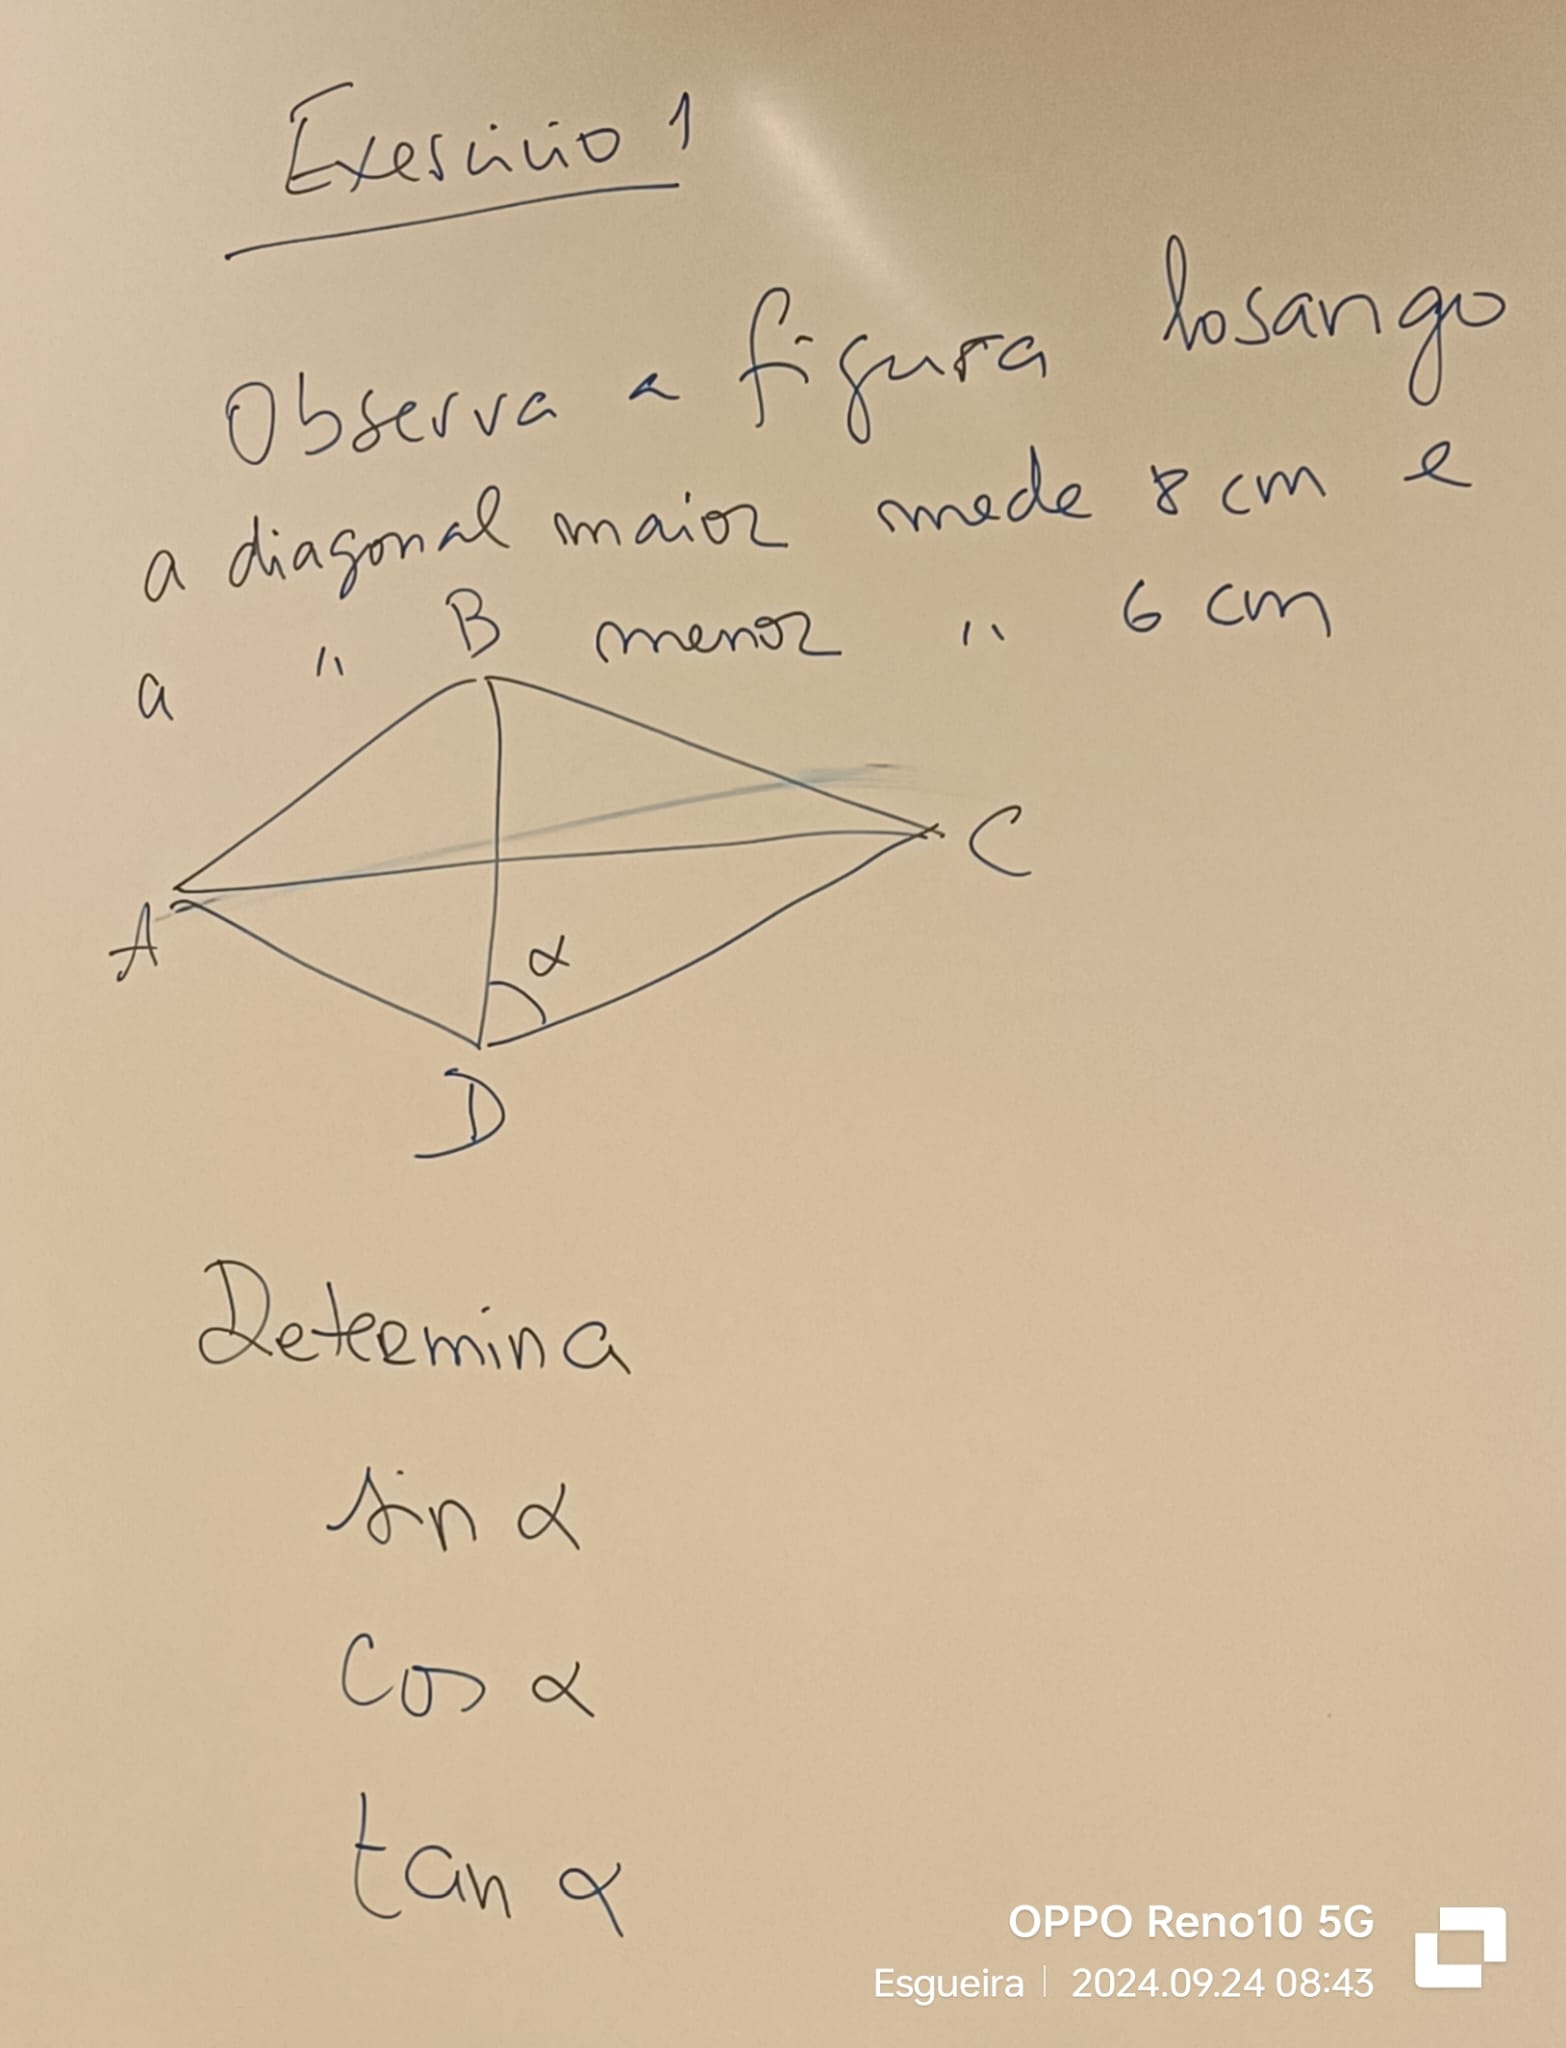 Exercicio 1
Observa a figura losango
a diagonal maior mede 8 cm e
a " menor " 6 cm
B
A
C
α
D
Determina
sin α
cos α
tan α
OPPO Reno10 5G
Esgueira | 2024.09.24 08:43